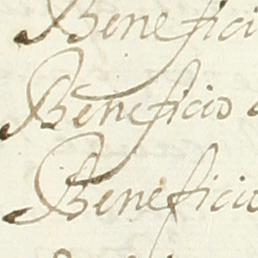 Benefici
Beneficio
Beneficio